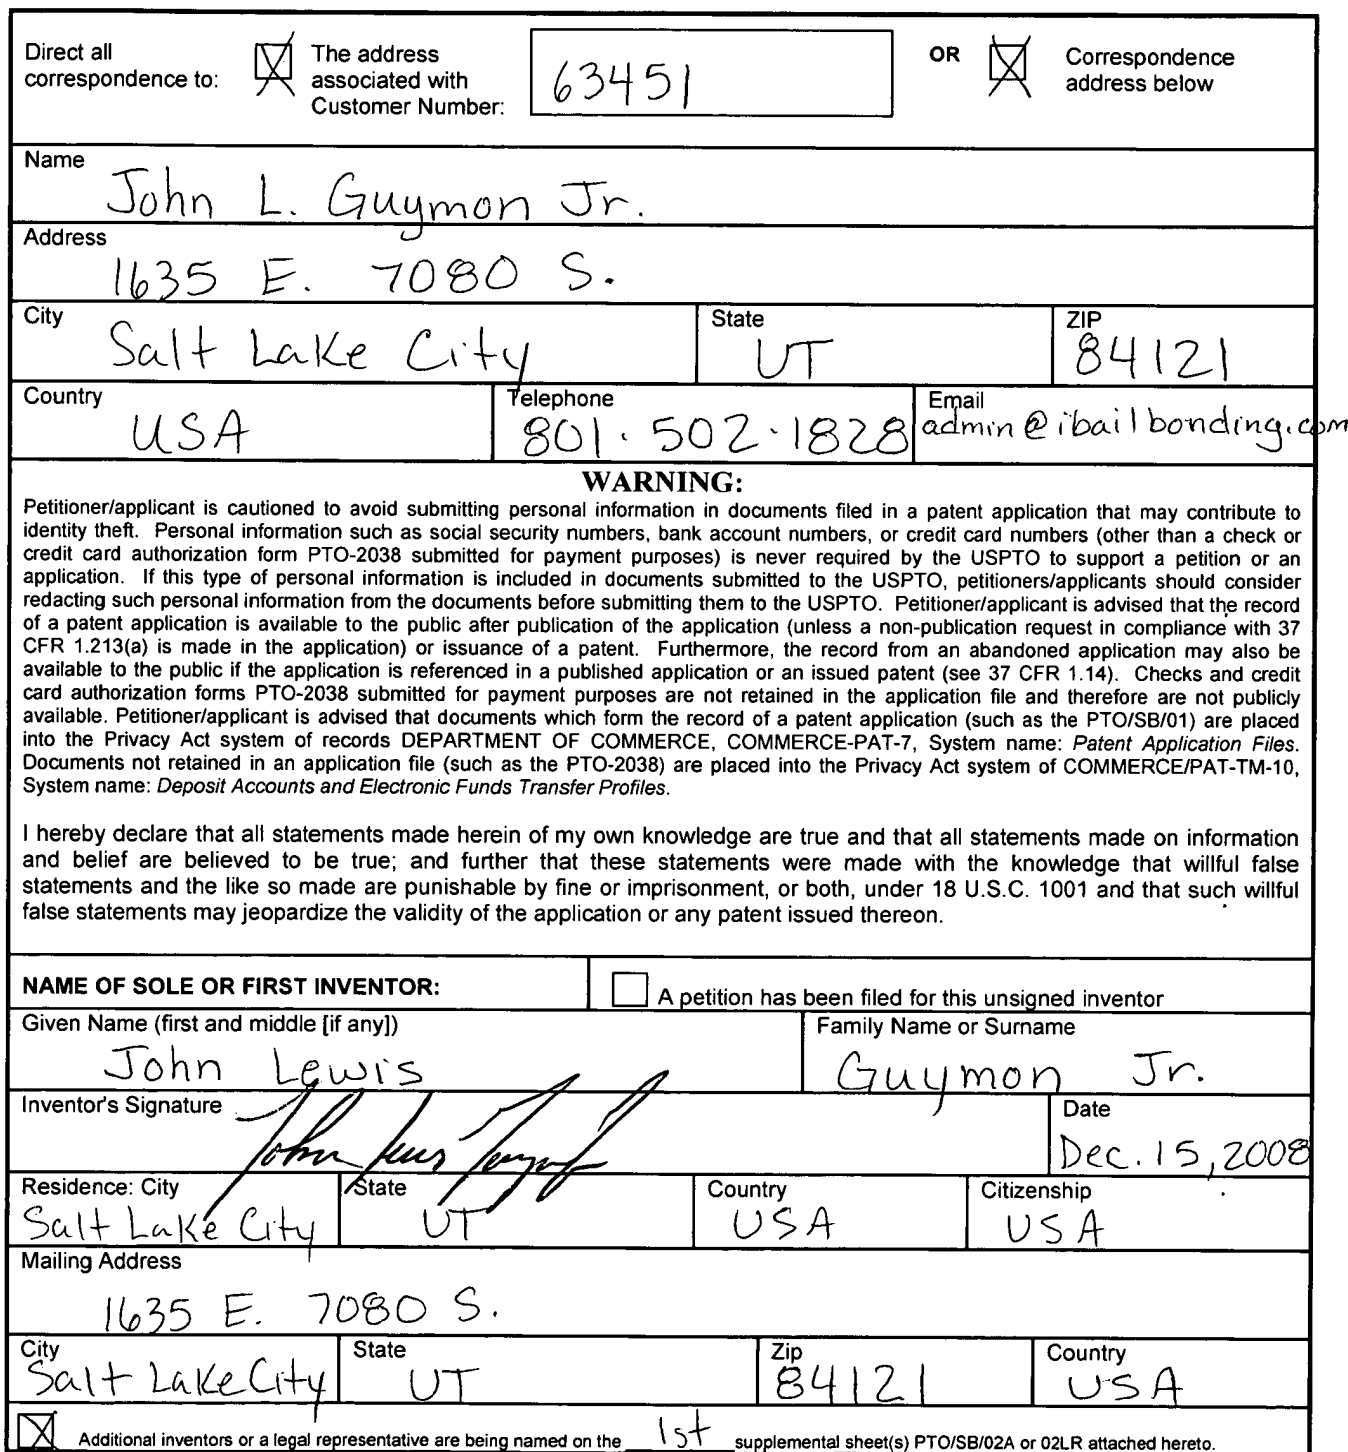 Direct all correspondence to: The address associated with Customer Number: 63451 OR Correspondence address below
Name
John L. Guymon Jr.
Address
1635 E. 7080 S.
City State ZIP
Salt Lake City UT 84121
Country Telephone Email
USA 801.502.1828 admin@ibailbonding.com
WARNING:
Petitioner/applicant is cautioned to avoid submitting personal information in documents filed in a patent application that may contribute to
identity theft. Personal information such as social security numbers, bank account numbers, or credit card numbers (other than a check or
credit card authorization form PTO-2038 submitted for payment purposes) is never required by the USPTO to support a petition or an
application. If this type of personal information is included in documents submitted to the USPTO, petitioners/applicants should consider
redacting such personal information from the documents before submitting them to the USPTO. Petitioner/applicant is advised that the record
of a patent application is available to the public after publication of the application (unless a non-publication request in compliance with 37
CFR 1.213(a) is made in the application) or issuance of a patent. Furthermore, the record from an abandoned application may also be
available to the public if the application is referenced in a published application or an issued patent (see 37 CFR 1.14). Checks and credit
card authorization forms PTO-2038 submitted for payment purposes are not retained in the application file and therefore are not publicly
available. Petitioner/applicant is advised that documents which form the record of a patent application (such as the PTO/SB/01) are placed
into the Privacy Act system of records DEPARTMENT OF COMMERCE, COMMERCE-PAT-7, System name: Patent Application Files.
Documents not retained in an application file (such as the PTO-2038) are placed into the Privacy Act system of COMMERCE/PAT-TM-10,
System name: Deposit Accounts and Electronic Funds Transfer Profiles.
I hereby declare that all statements made herein of my own knowledge are true and that all statements made on information
and belief are believed to be true; and further that these statements were made with the knowledge that willful false
statements and the like so made are punishable by fine or imprisonment, or both, under 18 U.S.C. 1001 and that such willful
false statements may jeopardize the validity of the application or any patent issued thereon.
NAME OF SOLE OR FIRST INVENTOR: A petition has been filed for this unsigned inventor
Given Name (first and middle [if any]) Family Name or Surname
John Lewis Guymon Jr.
Inventor's Signature Date
John Lewis Guymon Jr Dec. 15, 2008
Residence: City State Country Citizenship
Salt Lake City UT USA USA
Mailing Address
1635 E. 7080 S.
City State Zip Country
Salt Lake City UT 84121 USA
Additional inventors or a legal representative are being named on the 1st supplemental sheet(s) PTO/SB/02A or 02LR attached hereto.